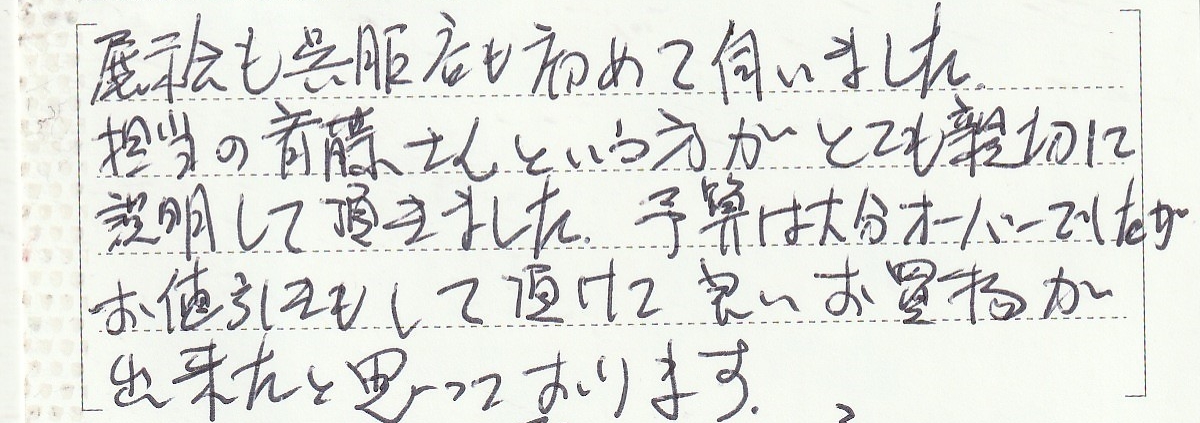 展示会も呉服店も初めて伺いました。
担当の斉藤さんという方がとても親切に
説明して頂きました。予算は大分オーバーでしたが
お値引きもして頂けて良いお買物が
出来たと思っております。